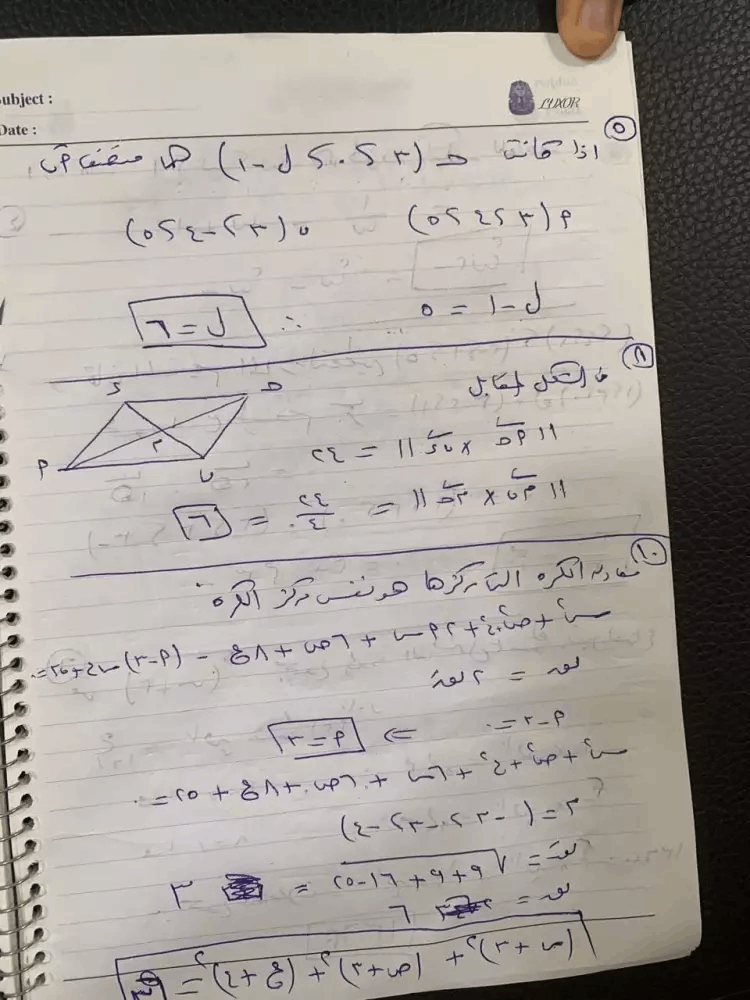 Subject :
LUXOR
Date :
٥ اذا كانت حـ (٣ ، ٠ ، ل-١) هى منتصف
٩ (٣ ، ٤ ، ٥) ب (٣ ، -٤ ، ٥)
ل-١ = ٥ ∴ ل=٦
٨ فى الشكل المقابل
|| أحـ × ب ء || = ٢٤
|| م ب × م حـ || = ٢٤/٤ = ٦
ء حـ م أ ب
١٠ معادلة الكرة التى مركزها هو نفس مركز الكرة
س² + ص² + ع² + ٢أس + ٦ص + ٨ع - (أ-٣)س ع + ٢٥ = ٠
نق = ٢ نق
أ-٣=٠ ⇐ أ=٣
س² + ص² + ع² + ٦س + ٦ص + ٨ع + ٢٥ = ٠
م = (-٣ ، -٣ ، -٤)
نق = √٩+٩+١٦-٢٥ = ٣
نق = ٦
(س+٣)² + (ص+٣)² + (ع+٤)² =